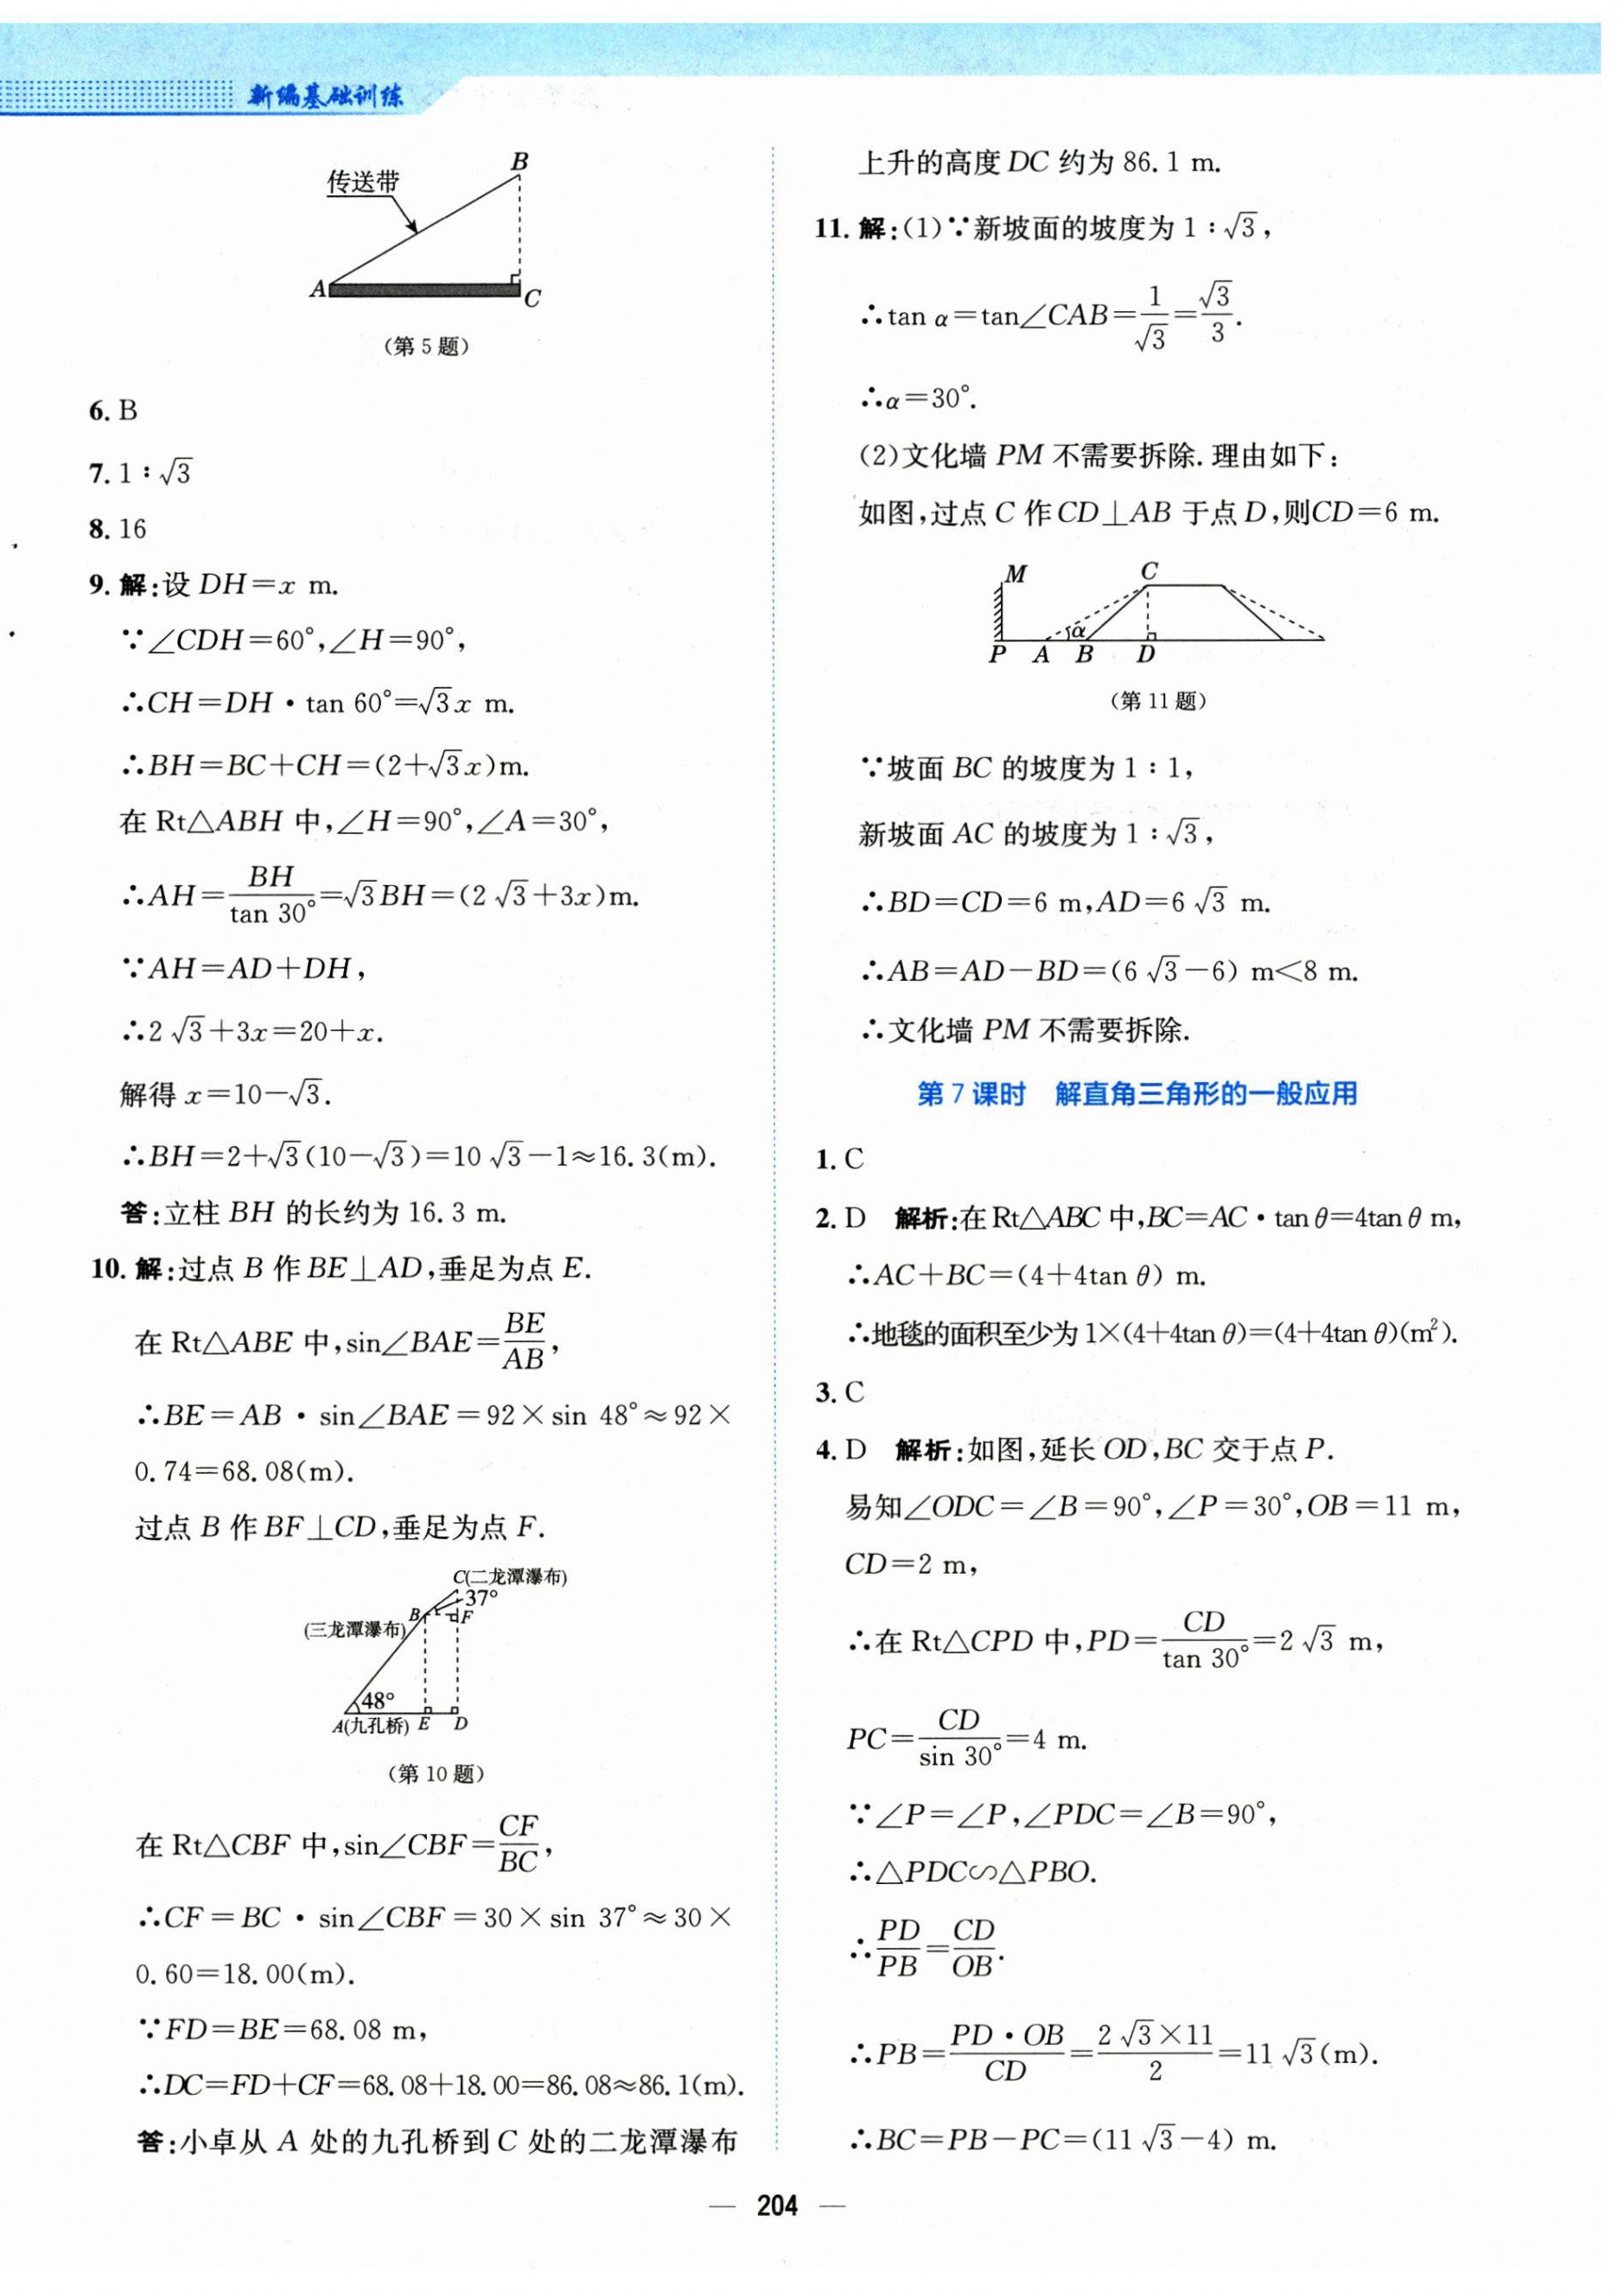 新编基础训练
传送带
B
A
C
(第 5 题)
6. B
7. 1∶√3
8. 16
9. 解:设 DH=x m.
∵∠CDH=60°,∠H=90°,
∴CH=DH·tan 60°=√3x m.
∴BH=BC+CH=(2+√3x)m.
在 Rt△ABH 中,∠H=90°,∠A=30°,
∴AH=BH/tan 30°=√3BH=(2√3+3x)m.
∵AH=AD+DH,
∴2√3+3x=20+x.
解得 x=10-√3.
∴BH=2+√3(10-√3)=10√3-1≈16.3(m).
答:立柱 BH 的长约为 16.3 m.
10. 解:过点 B 作 BE⊥AD,垂足为点 E.
在 Rt△ABE 中,sin∠BAE=BE/AB,
∴BE=AB·sin∠BAE=92×sin 48°≈92×
0.74=68.08(m).
过点 B 作 BF⊥CD,垂足为点 F.
C(二龙潭瀑布)
37°
B
F
(三龙潭瀑布)
48°
A(九孔桥) E D
(第 10 题)
在 Rt△CBF 中,sin∠CBF=CF/BC,
∴CF=BC·sin∠CBF=30×sin 37°≈30×
0.60=18.00(m).
∵FD=BE=68.08 m,
∴DC=FD+CF=68.08+18.00=86.08≈86.1(m).
答:小卓从 A 处的九孔桥到 C 处的二龙潭瀑布
上升的高度 DC 约为 86.1 m.
11. 解:(1)∵新坡面的坡度为 1∶√3,
∴tan α=tan∠CAB=1/√3=√3/3.
∴α=30°.
(2)文化墙 PM 不需要拆除.理由如下:
如图,过点 C 作 CD⊥AB 于点 D,则CD=6 m.
M
C
α
P A B D
(第 11 题)
∵坡面 BC 的坡度为 1∶1,
新坡面 AC 的坡度为 1∶√3,
∴BD=CD=6 m,AD=6√3 m.
∴AB=AD-BD=(6√3-6) m<8 m.
∴文化墙 PM 不需要拆除.
第 7 课时 解直角三角形的一般应用
1. C
2. D 解析:在 Rt△ABC 中,BC=AC·tan θ=4tan θ m,
∴AC+BC=(4+4tan θ) m.
∴地毯的面积至少为 1×(4+4tan θ)=(4+4tan θ)(m²).
3. C
4. D 解析:如图,延长 OD,BC 交于点 P.
易知∠ODC=∠B=90°,∠P=30°,OB=11 m,
CD=2 m,
∴在 Rt△CPD 中,PD=CD/tan 30°=2√3 m,
PC=CD/sin 30°=4 m.
∵∠P=∠P,∠PDC=∠B=90°,
∴△PDC∽△PBO.
∴PD/PB=CD/OB.
∴PB=PD·OB/CD=2√3×11/2=11√3(m).
∴BC=PB-PC=(11√3-4) m.
— 204 —